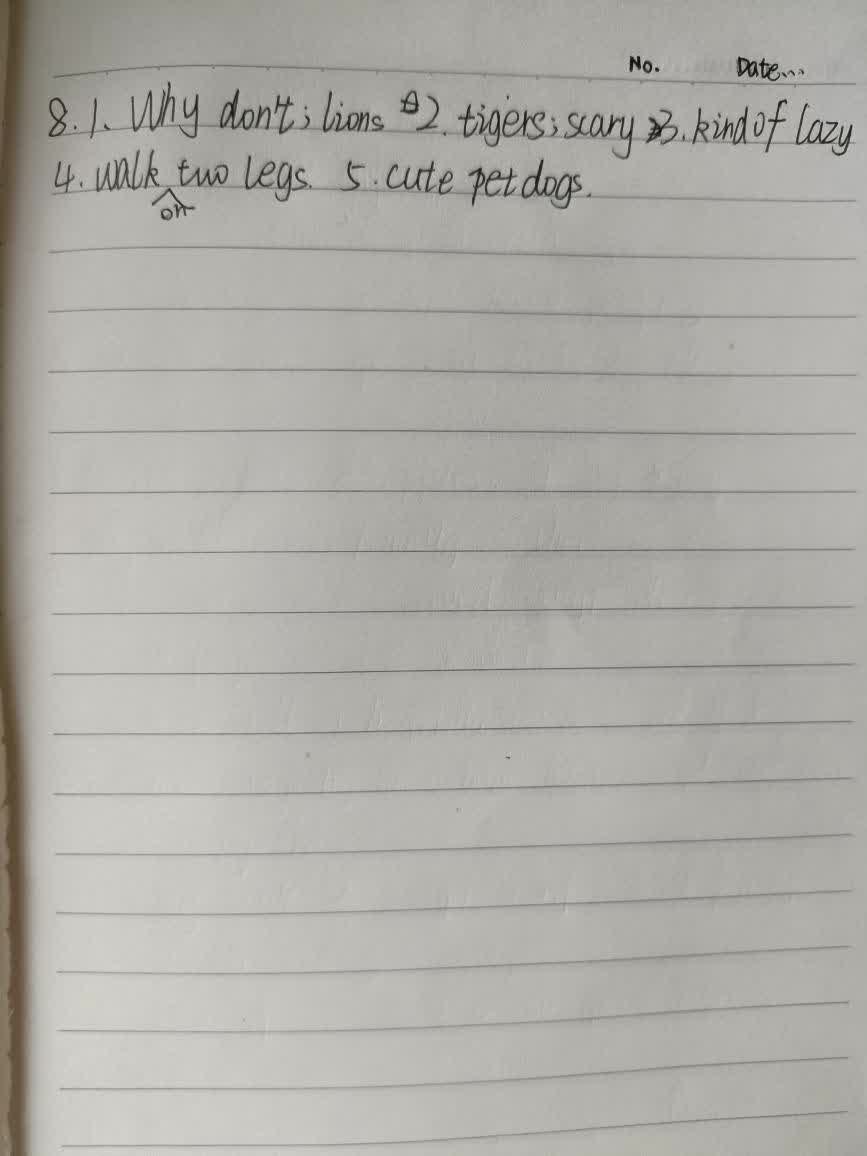 No. Date...
8.1. Why don't; lions 2. tigers; scary 3. kind of lazy
4. walk on two legs. 5. cute pet dogs.